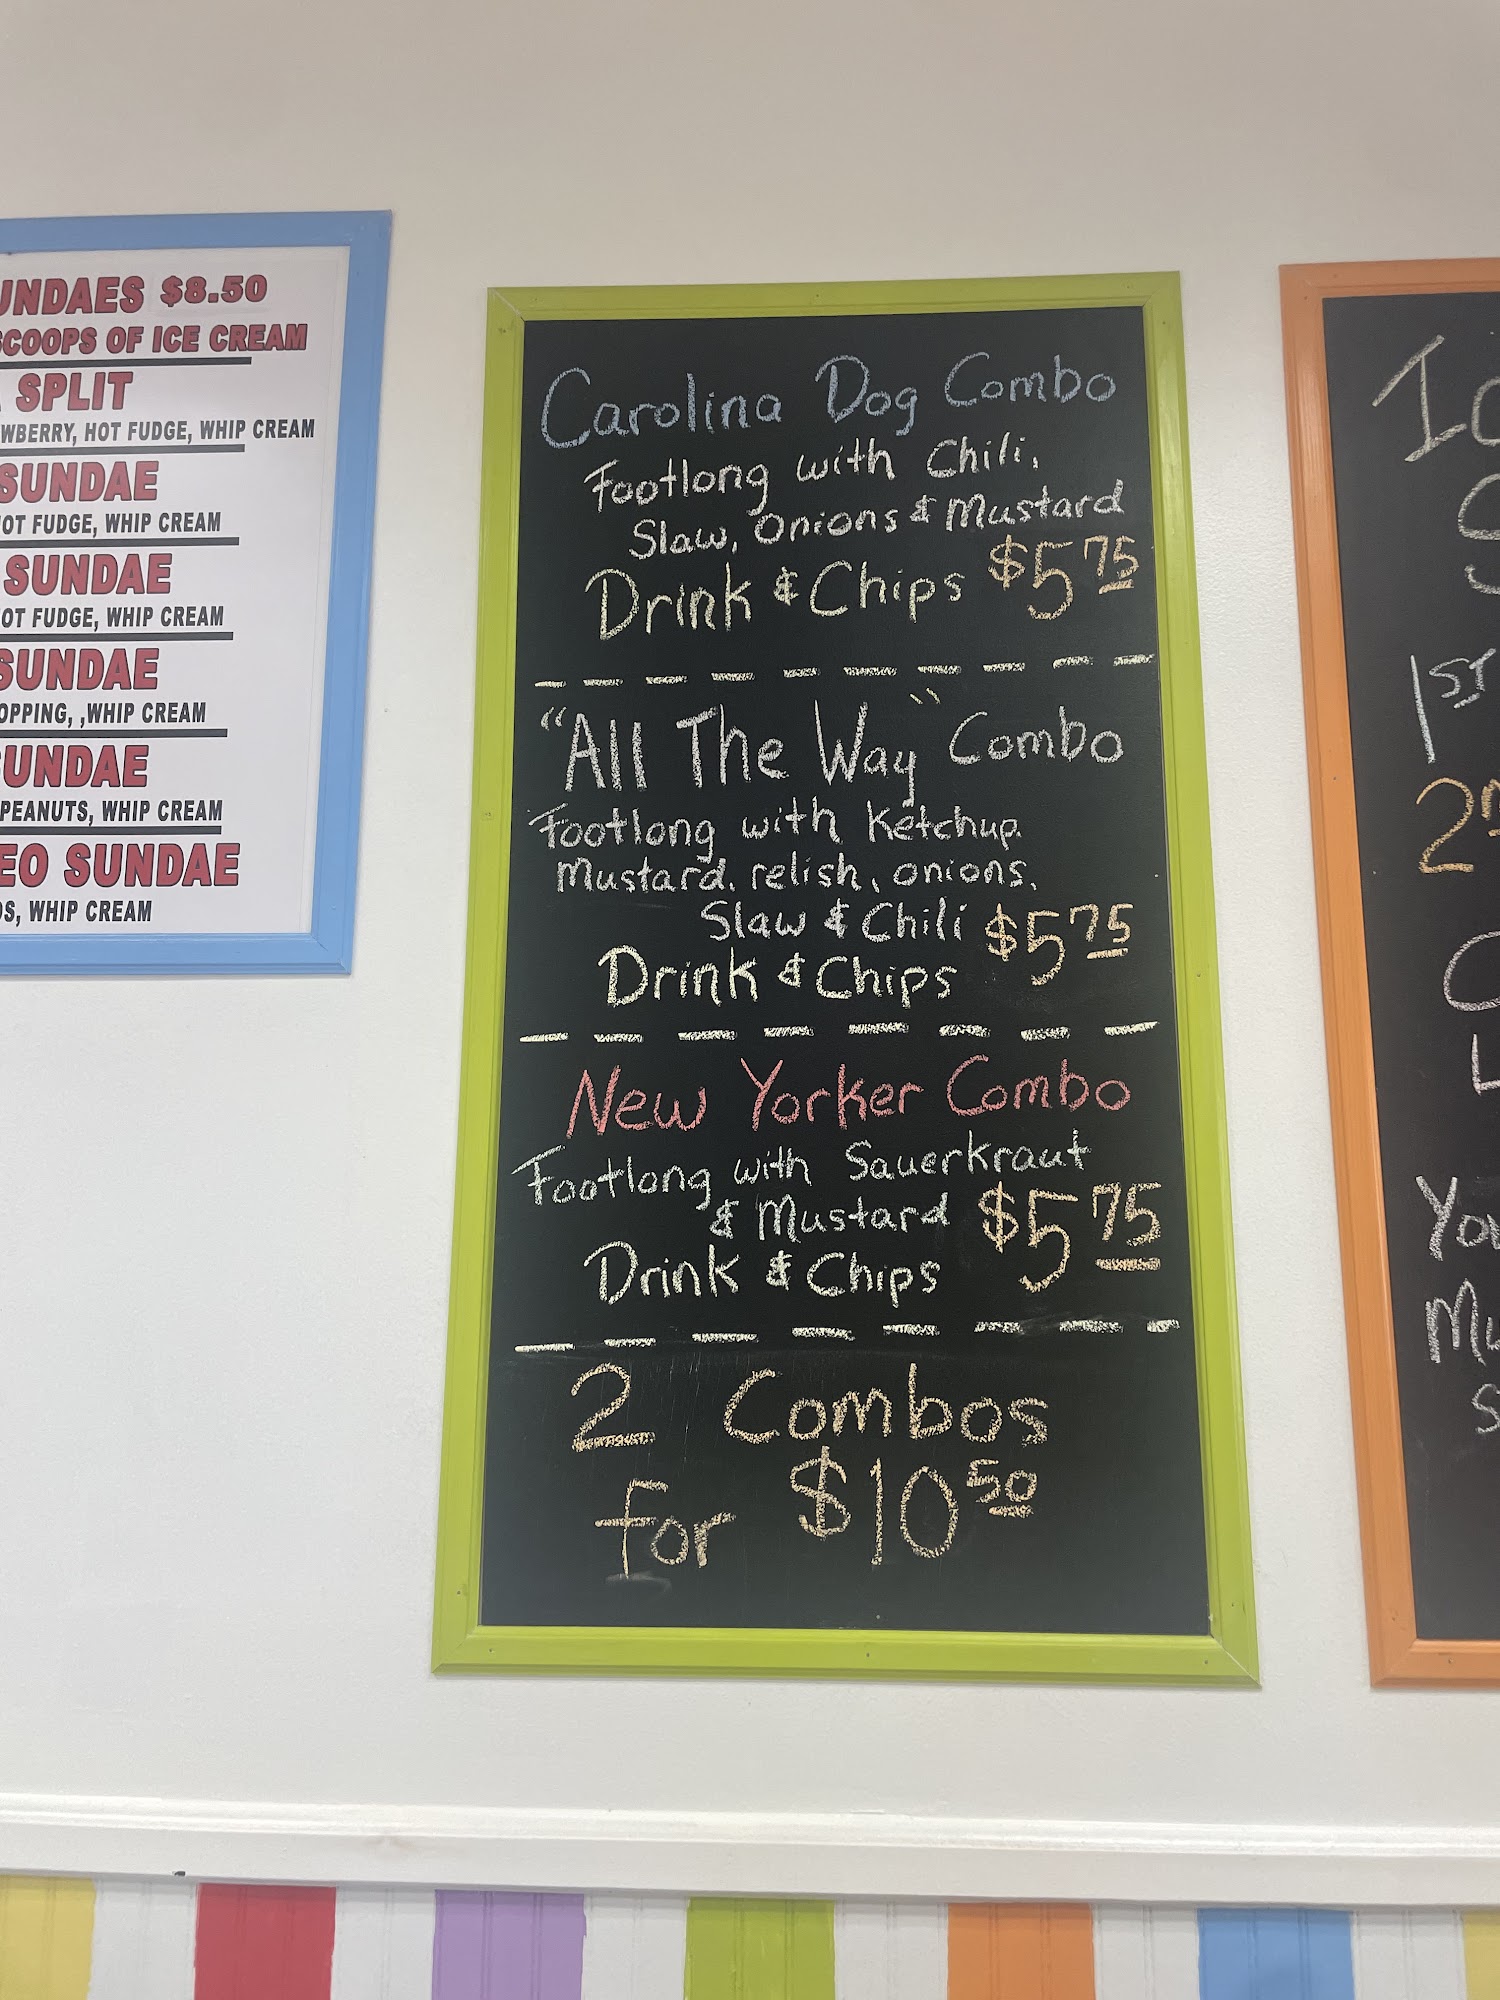 $8.50
SCOOPS OF ICE CREAM
SPLIT
HOT FUDGE, WHIP CREAM
SUNDAE
FUDGE, WHIP CREAM
SUNDAE
FUDGE, WHIP CREAM
SUNDAE
,WHIP CREAM
PEANUTS, WHIP CREAM
SUNDAE
WHIP CREAM
Carolina Dog Combo
Footlong with Chili,
Slaw, Onions & Mustard
Drink & Chips $5.75
"All The Way" Combo
Footlong with Ketchup,
Mustard, relish, onions,
Slaw & Chili $5.75
Drink & Chips
New Yorker Combo
Footlong with Sauerkraut
& Mustard $5.75
Drink & Chips
2 Combos
for $10.50
1ST